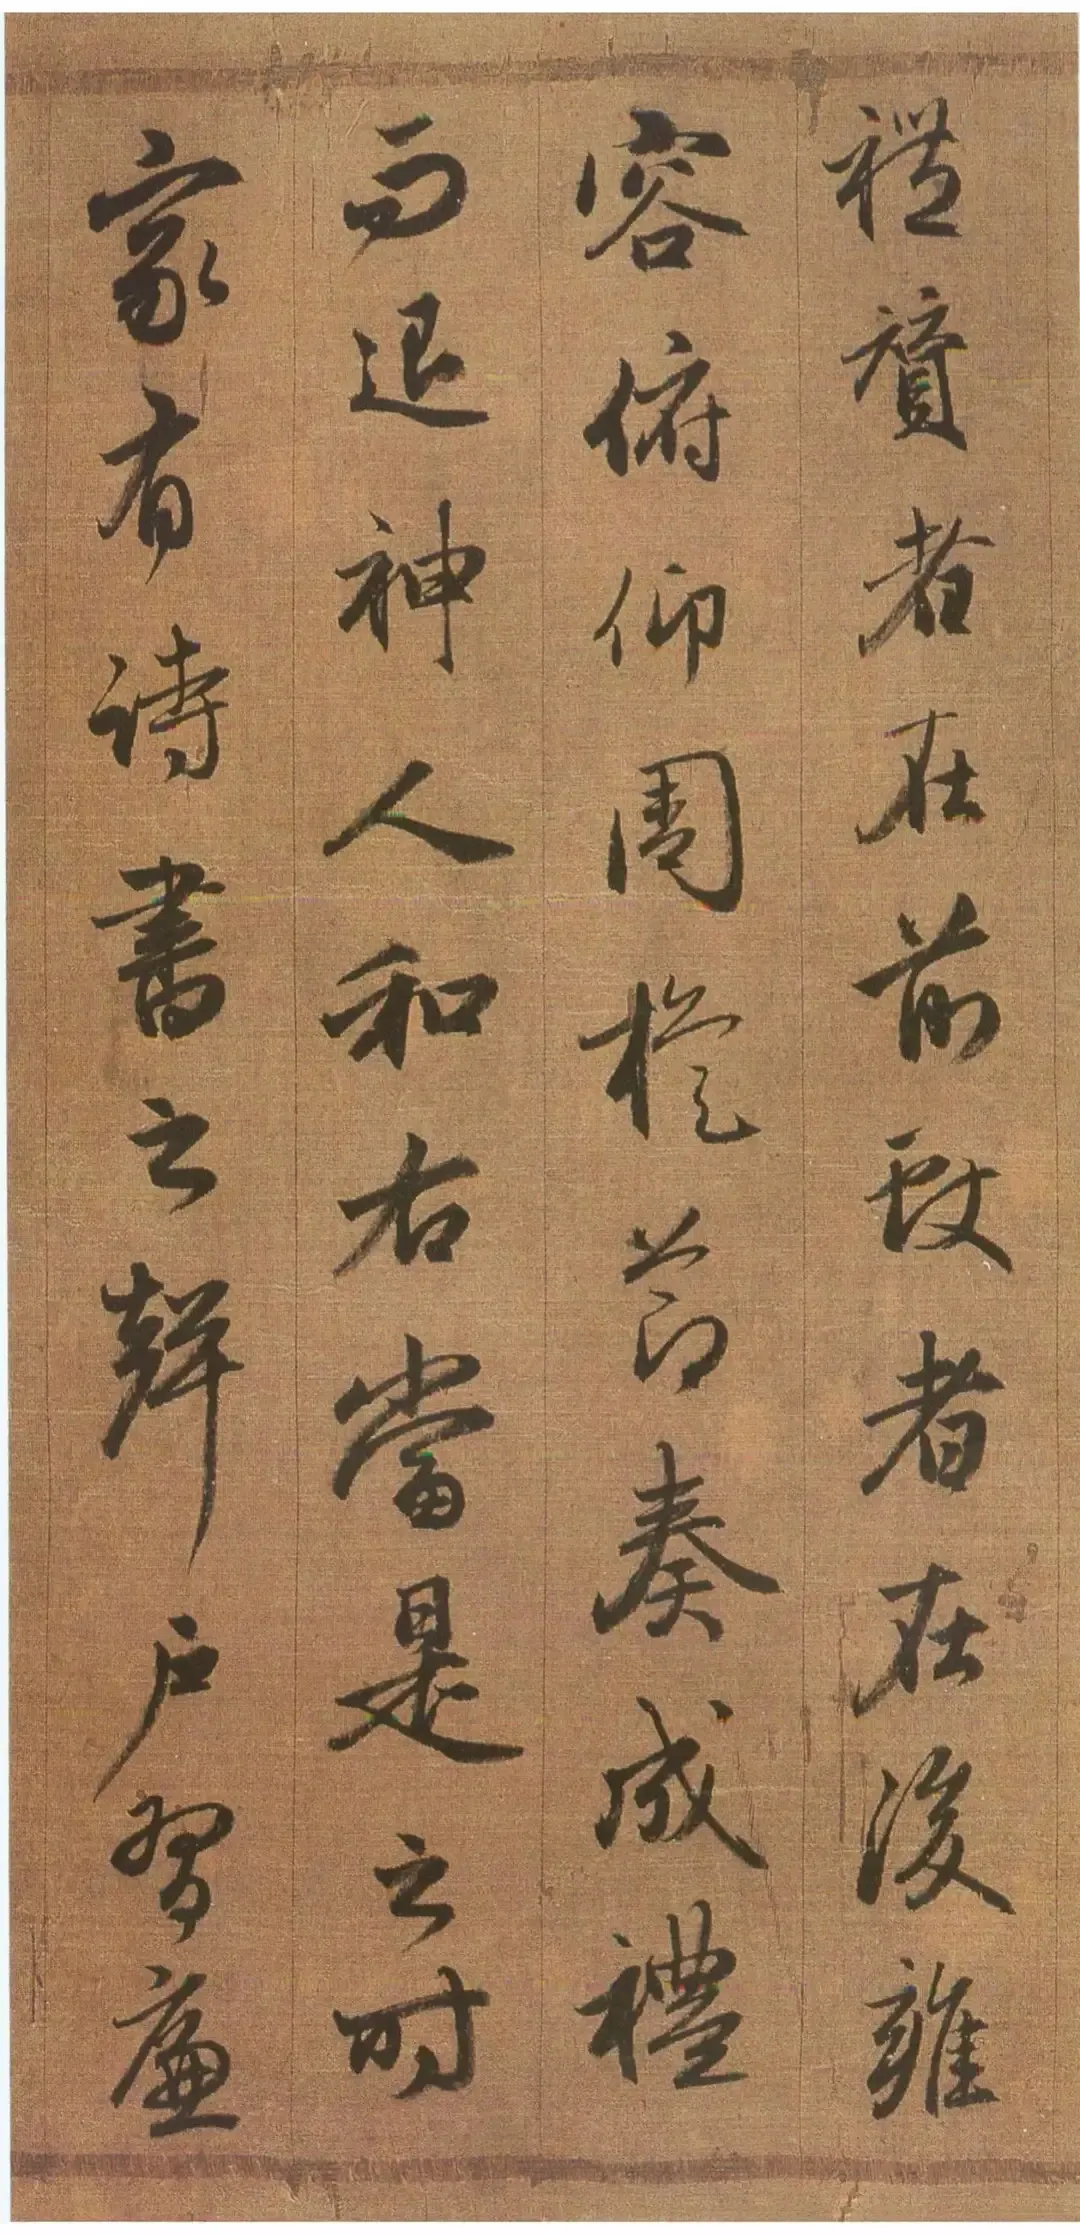 禮贊者在前致者在後雍
容俯仰周旋節奏成禮
而退神人和右當是之時
家有詩書之聲戶習廉